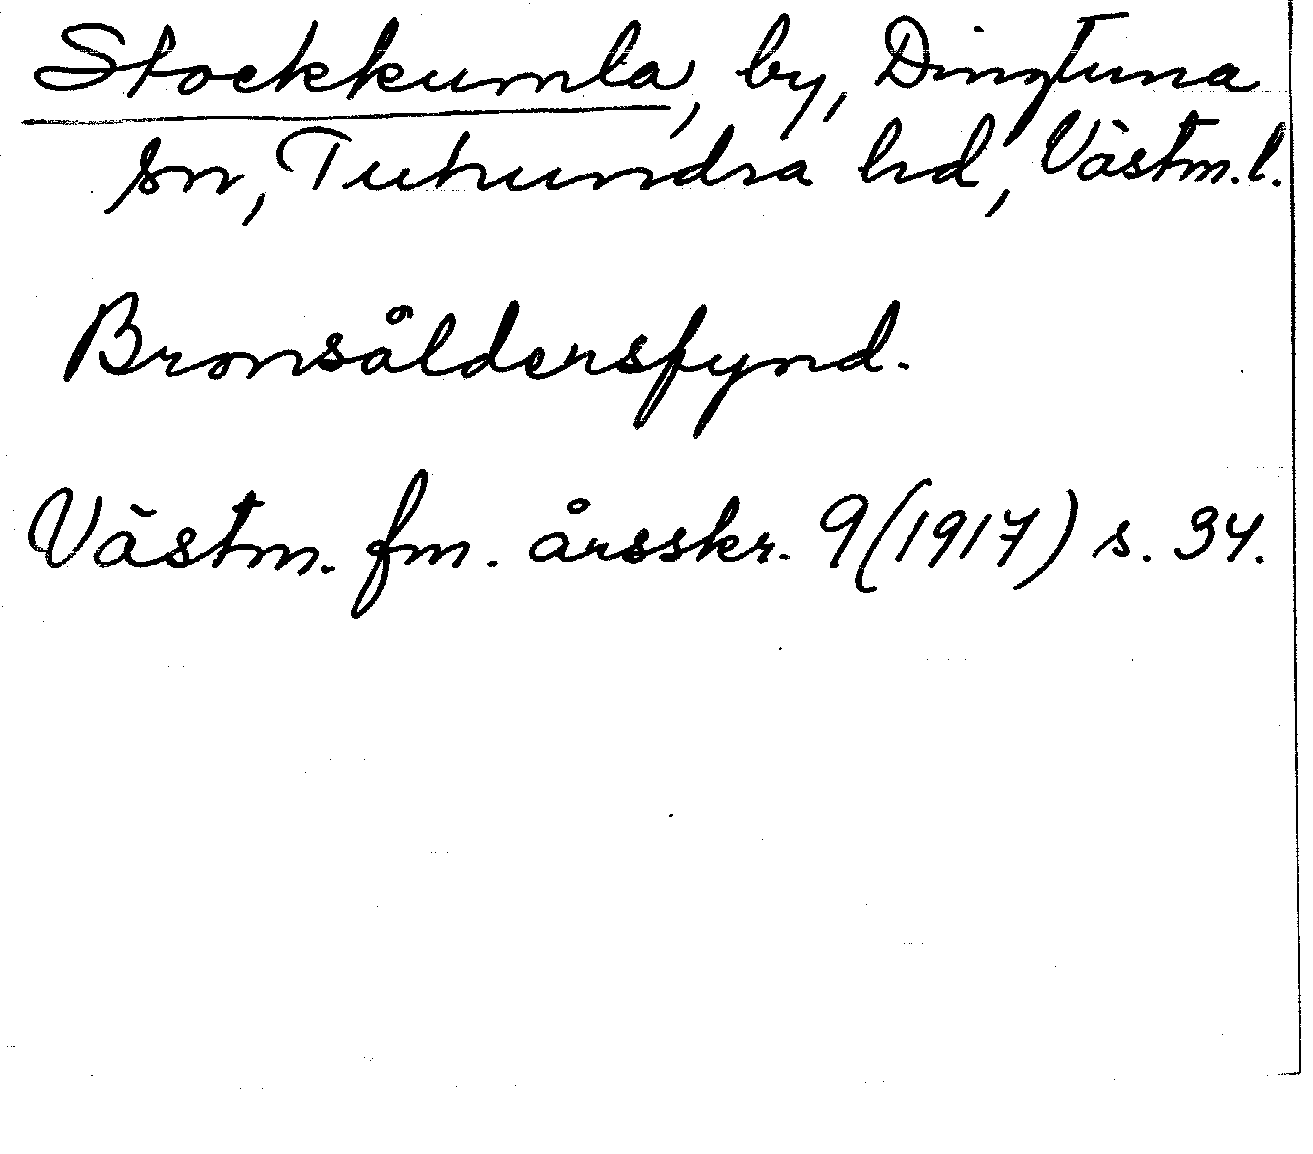 Stockkumla, by, Dingtuna
sn, Tuhundra hd, Västm. l.
Bronsåldersfynd.
Västm. fm. årsskr. 9 (1917) s. 34.